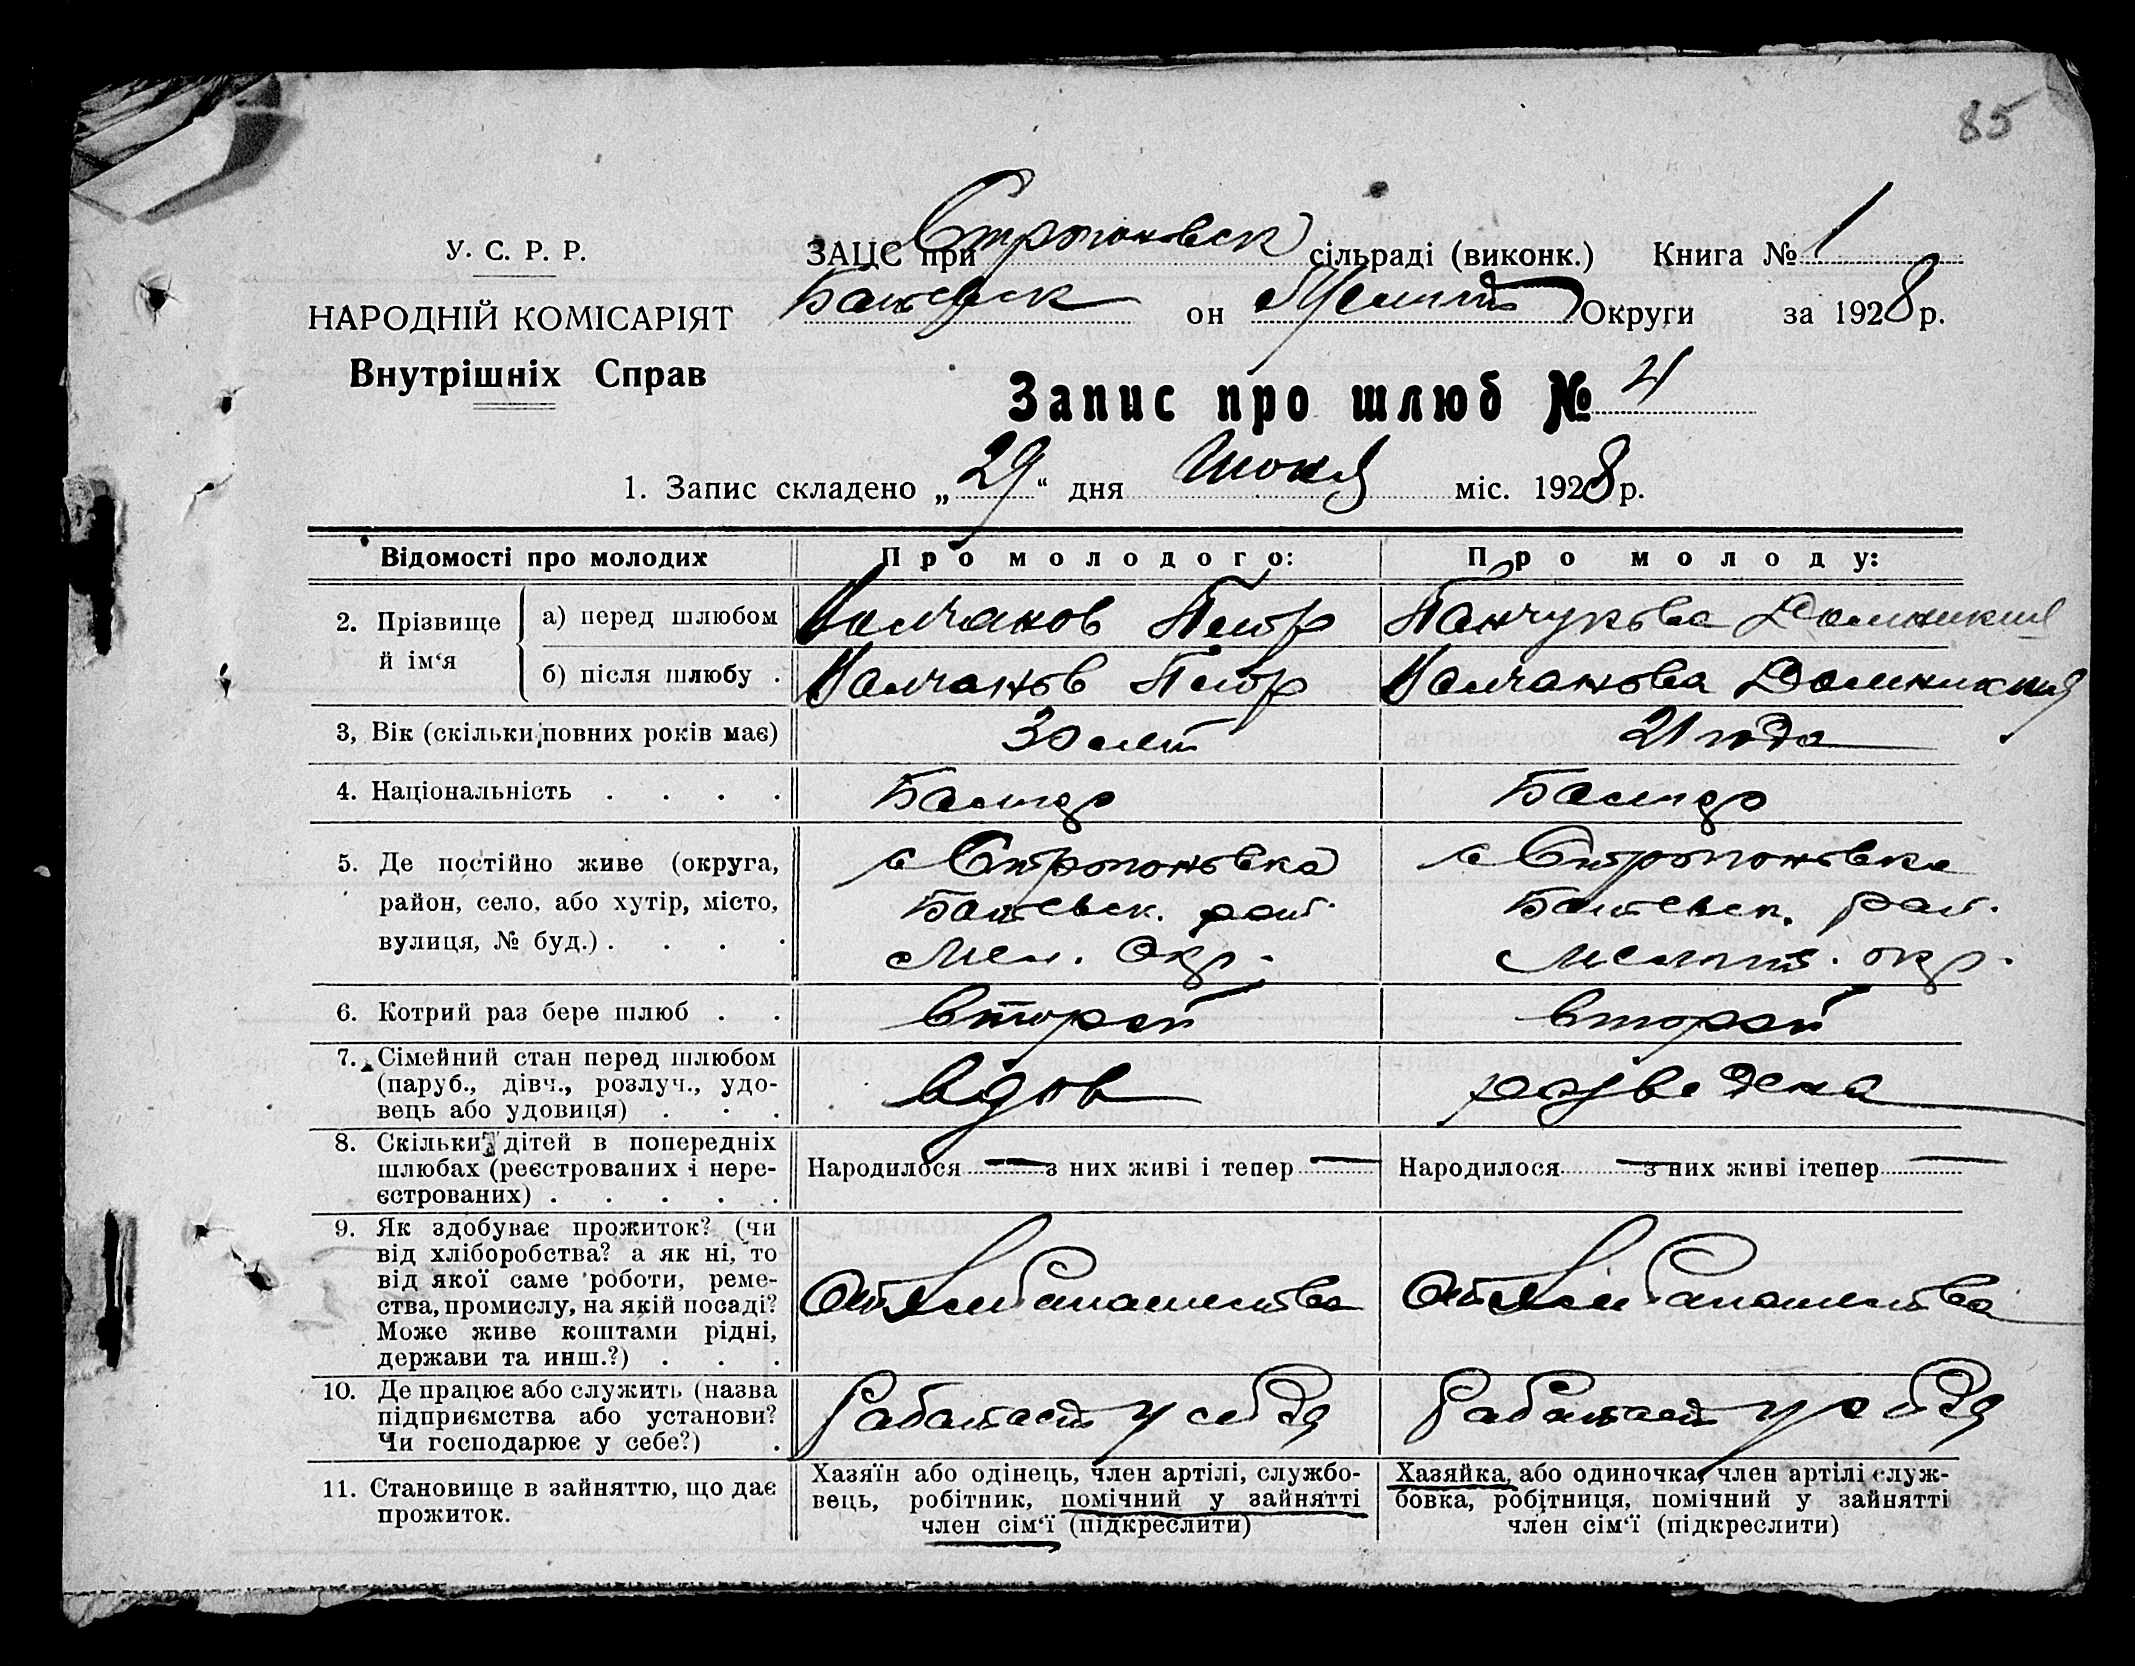 85
У. С. Р. Р.
НАРОДНІЙ КОМІСАРІЯТ
Внутрішніх Справ
ЗАЦС при Строгоновск сільраді (виконк.) Книга № 1
он Округи за 1928 р.
Запис про шлюб № 4
1. Запис складено „29“ дня Июня міс. 1928 р.
Відомості про молодих Про молодого: Про молоду:
2. Прізвище й ім‘я
а) перед шлюбом Петр
б) після шлюбу . Петр
3, Вік (скільки повних років має) 30 лет 21 года
4. Національність . . . .
5. Де постійно живе (округа,
район, село, або хутір, місто,
вулиця, № буд.) . . . .
с Строгоновка
рай.
Мел. Окр.
с Строгоновка
рай.
Мелит. окр.
6. Котрий раз бере шлюб . . второй второй
7. Сімейний стан перед шлюбом
(паруб., дівч., розлуч., удо-
вець або удовиця) . . .
вдов разведена
8. Скільки дітей в попередніх
шлюбах (реєстрованих і нере-
єстрованих) . . . . .
Народилося — з них живі і тепер — Народилося — з них живі ітепер —
9. Як здобуває прожиток? (чи
від хліборобства? а як ні, то
від якої саме роботи, реме-
ства, промислу, на якій посаді?
Може живе коштами рідні,
держави та инш.?) . . .
10. Де працює або служить (назва
підприємства або установи?
Чи господарює у себе?) .
Работает у себя Работает у себя
11. Становище в зайняттю, що дає
прожиток.
Хазяїн або одінець, член артілі, службо-
вець, робітник, помічний у зайнятті
член сім‘ї (підкреслити)
Хазяйка, або одиночка, член артілі служ-
бовка, робітниця, помічний у зайнятті
член сім‘ї (підкреслити)